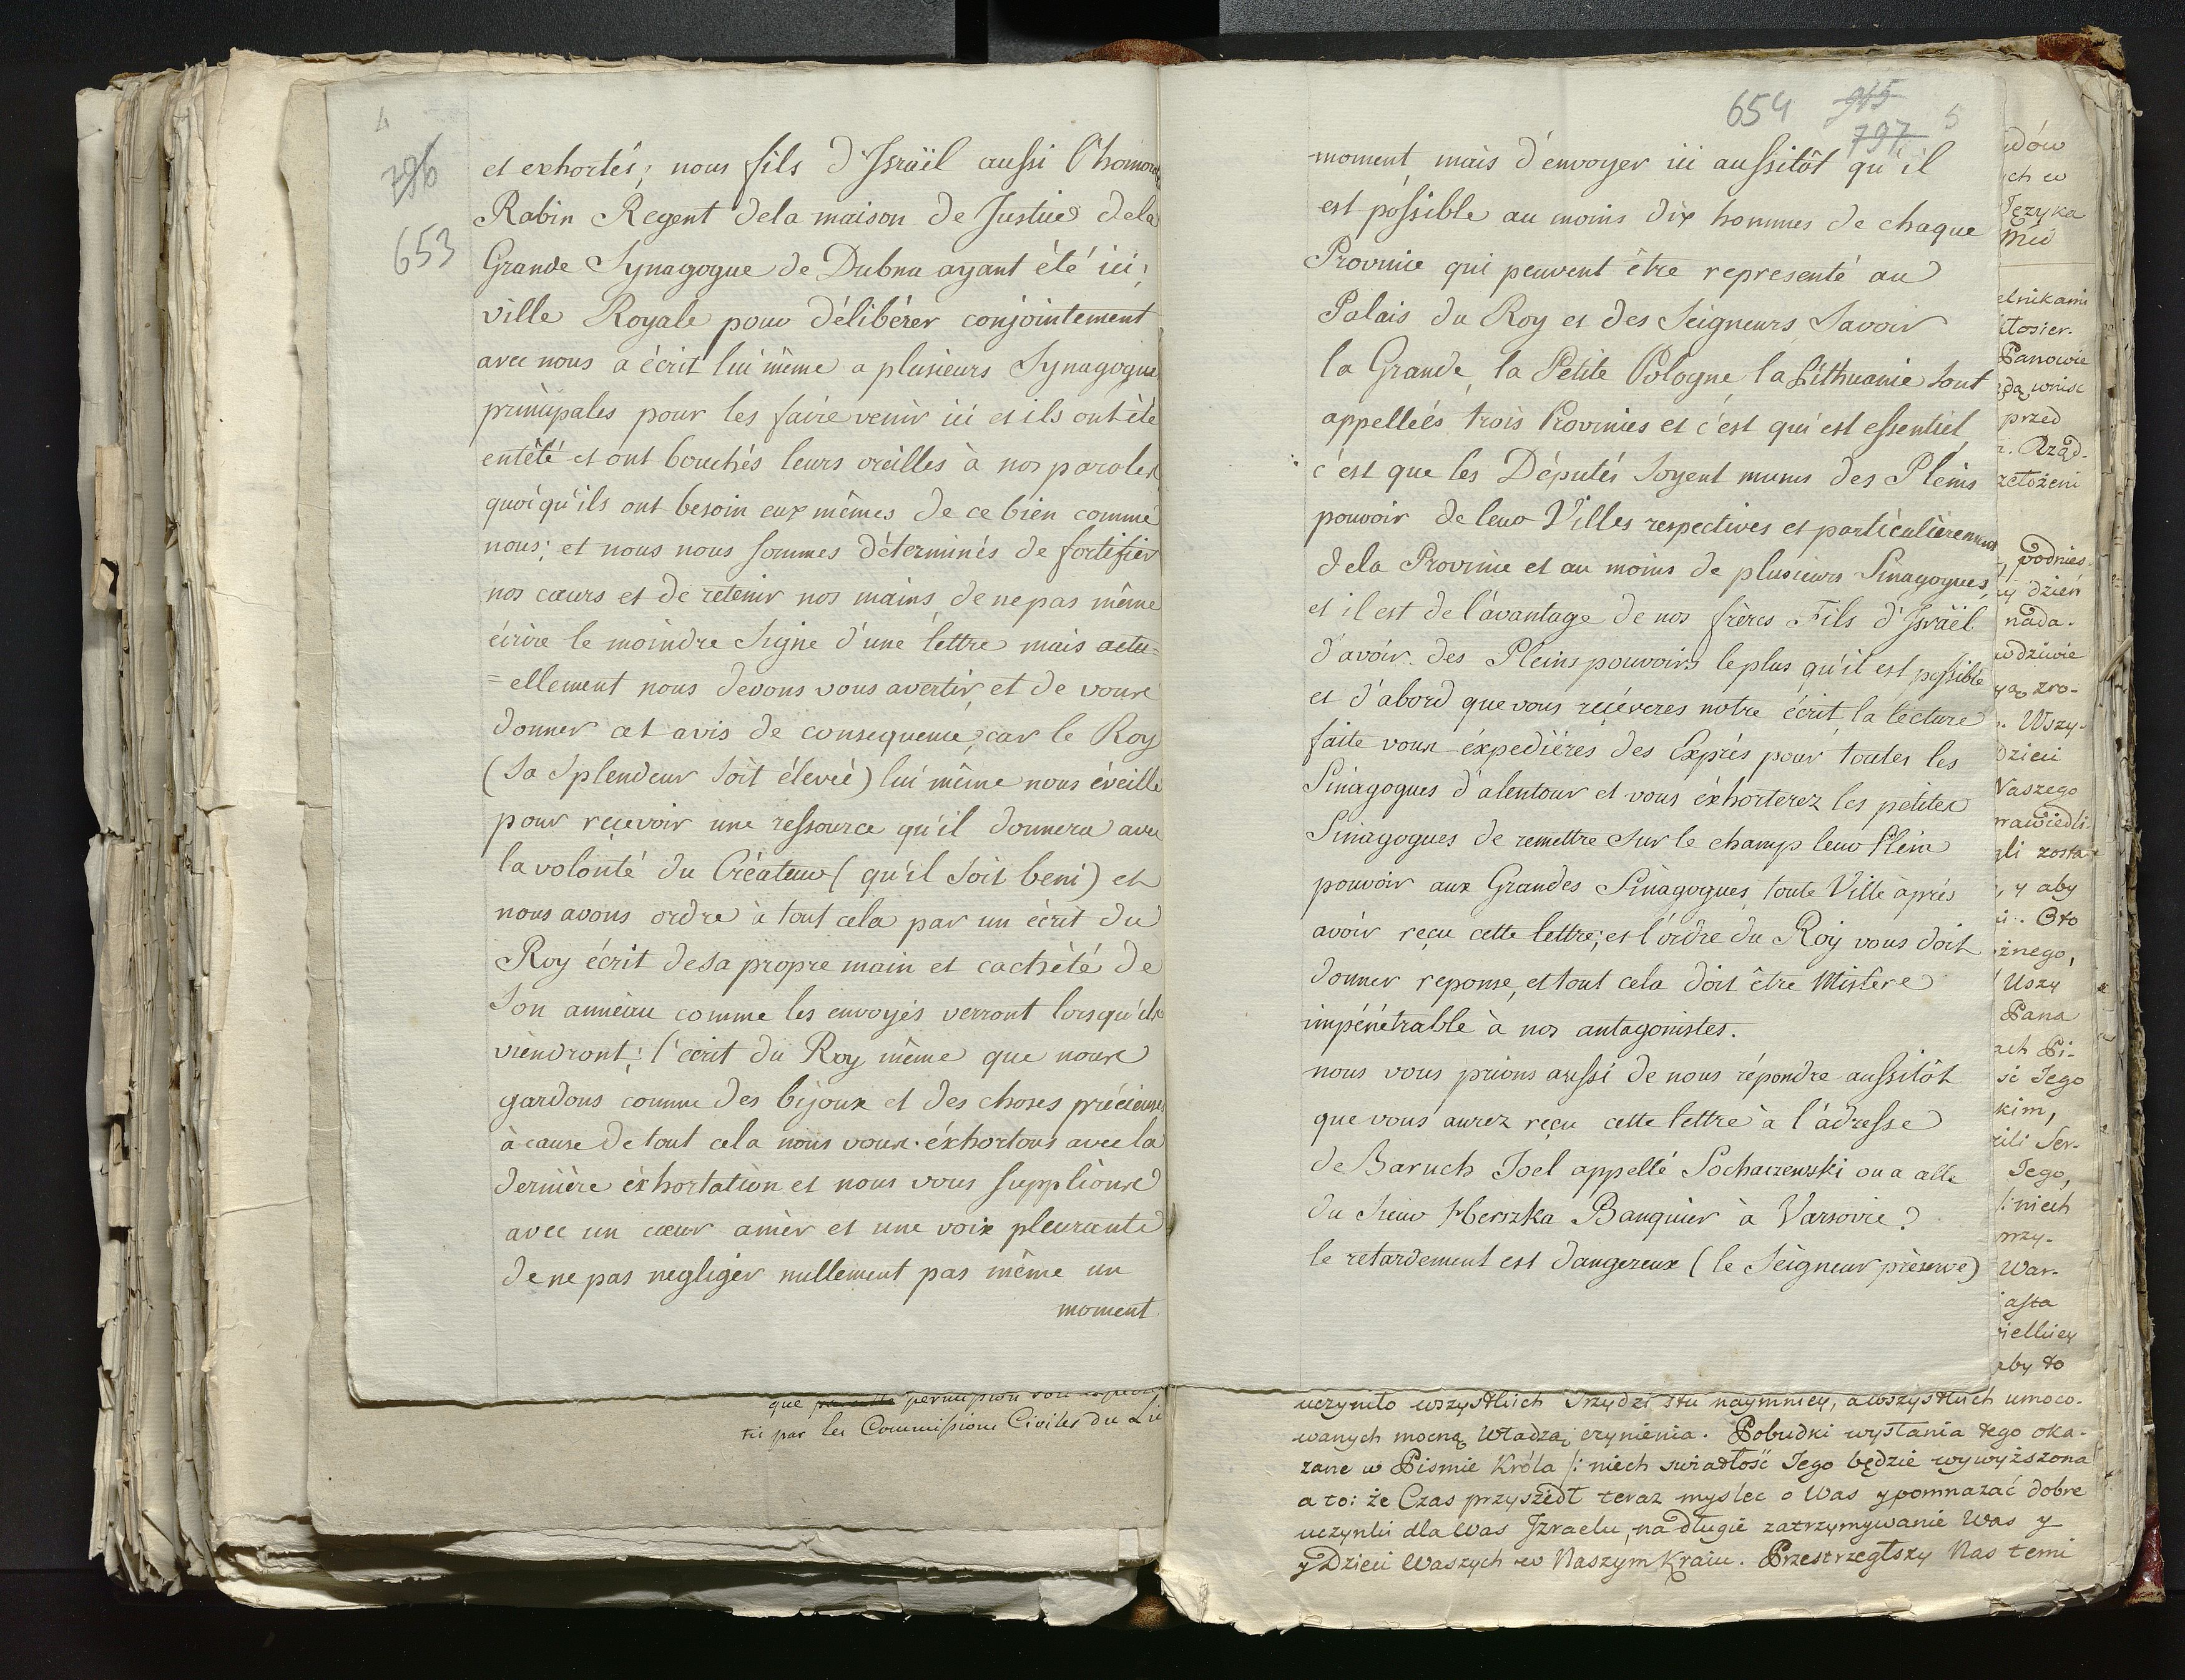 4
796
653
et exhortés; nous fils d'Israïl aussi l'honoré
Rabin Regent dela maison de Justice dela
Grande Synagogue de Dubna ayant été ici,
ville Royale pour délibérer conjointement
avec nous a écrit lui même a plusieurs Synagogue
principales pour les faire venir ici et ils ont été
entêté et ont bouchés leurs oreilles à nos paroles
quoiqu'ils ont besoin eux mêmes de ce bien comme
nous; et nous nous sommes déterminés de fortifier
nos cœurs et de retenir nos mains de ne pas même
écrire le moindre Signe d'une lettre mais actu=
=ellement nous devons vous avertir et de vous
donner cet avis de consequence, car le Roy
(Sa Splendeur soit élevée) lui même nous éveille
pour reçevoir une ressource qu'il donnera avec
la volonté du Créateur (qu'il soit beni) et
nous avons ordre à tout cela par un écrit du
Roy écrit de sa propre main et cachêté de
Son anneau comme les envoyés verront lorsqu'ils
viendront; l'écrit du Roy même que nous
gardons comme des bijoux et des choses précieuses
à cause de tout cela nous vous éxhortons avec la
dernière éxhortation et nous vous supplions
avec un cœur amèr et une voix pleurante
de ne pas negliger nullement pas même un
moment
que par cette permission
par les Commissions Civiles du
654 915 5
797
moment, mais d'envoyer ici aussitôt qu'il
est possible au moins dix hommes de chaque
Province qui peuvent être representé au
Palais du Roy et des Seigneurs, Savoir
la Grande, la Petite Pologne, la Lithuanie sont
appelleés trois Provinces et c'est qui est essentiel,
c'est que les Députés soyent munis des Pleins
pouvoir de leur Villes respectives et particulièrement
dela Province et au moins de plusieurs Sinagogues,
et il est de l'avantage de nos frères Fils d'Israël
d'avoir des Pleins pouvoirs le plus qu'il est possible
et d'abord que vous reçéveres notre écrit, la lecture
faite vous éxpedières des Exprés pour toutes les
Sinagogues d'alentour et vous éxhorterez les petites
Sinagogues de remettre sur le champ leur Plein
pouvoir aux Grandes Sinagogues, toute Ville après
avoir reçu cette lettre; et l'ordre du Roy vous doit
donner reponse, et tout cela doit être Mistere
impénétrable à nos antagonistes.
nous vous prions aussi de nous répondre aussitôt
que vous aurez reçu cette lettre à l'adresse
de Baruch Joel appellé Sochaczewski ou a celle
du Sieur Herszka Banquier à Varsovie?
le retardement est dangereux (le Seigneur préserve)
dów
ch w
Języka
elnikami
tosier.
Panowie
dą wnisc
przed
Rząd.
zełożeni
podnies.
dzień
nada.
wdziwie
zro-
Wszy-
Dzieci
Naszego
rawiedli-
gli zosta
y aby
Oto
żnego,
Uszy
Pana
ach Pi-
si Jego
kim,
zili Ser-
Jego,
niech
rzy-
War-
asta
ielkiey
aby to
uczyniło wszystkich Trzydziestu naymniey, a wszystkich umoco-
wanych mocną Władzą czynienia. Pobudki wysłania tego oka-
zane w Pismie Króla /: niech swiatłość Jego będzie wywyższona
a to: że Czas przyszedł teraz myslec o Was y pomnażać dobre
uczynki dla Was Izraelu, na długie zatrzymywanie Was y
y Dzieci Waszych w Naszym Kraiu. Przestrzegłszy Nas temi